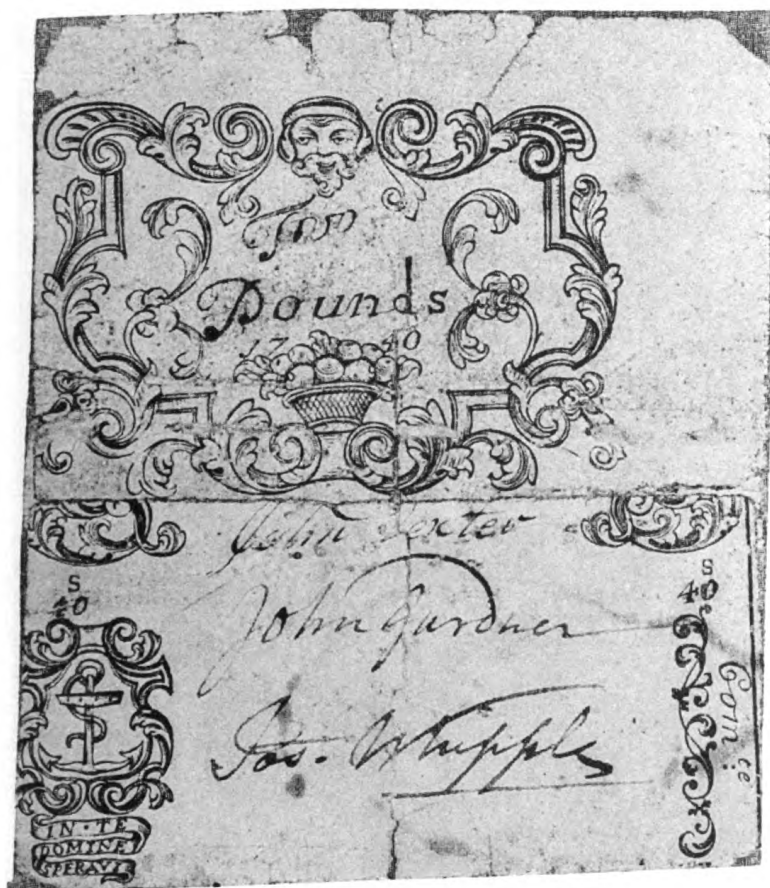 Two
Pounds
17 40
John Dexter
S
40
S
40
John Gardner
Jos. Whipple
Com tee
IN · TE
DOMINE
SPERAVI